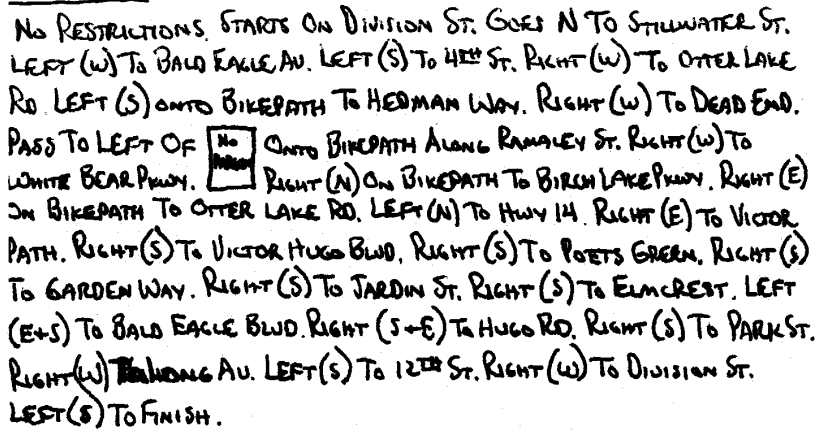 NO RESTRICTIONS. STARTS ON DIVISION ST. GOES N TO STILLWATER ST.
LEFT (W) TO BALD EAGLE AV. LEFT (S) TO 4TH ST. RIGHT (W) TO OTTER LAKE
RD LEFT (S) ONTO BIKEPATH TO HEDMAN WAY. RIGHT (W) TO DEAD END.
PASS TO LEFT OF NO PARKING ONTO BIKEPATH ALONG RAMALEY ST. RIGHT (W) TO
WHITE BEAR PKWY. RIGHT (N) ON BIKEPATH TO BIRCH LAKE PKWY. RIGHT (E)
ON BIKEPATH TO OTTER LAKE RD. LEFT (N) TO HWY 14. RIGHT (E) TO VICTOR
PATH. RIGHT (S) TO VICTOR HUGO BLVD. RIGHT (S) TO POETS GREEN. RIGHT (S)
TO GARDEN WAY. RIGHT (S) TO JARDIN ST. RIGHT (S) TO ELMCREST. LEFT
(E+S) TO BALD EAGLE BLVD. RIGHT (S+E) TO HUGO RD. RIGHT (S) TO PARK ST.
RIGHT (W) TO LONG AV. LEFT (S) TO 12TH ST. RIGHT (W) TO DIVISION ST.
LEFT (S) TO FINISH.